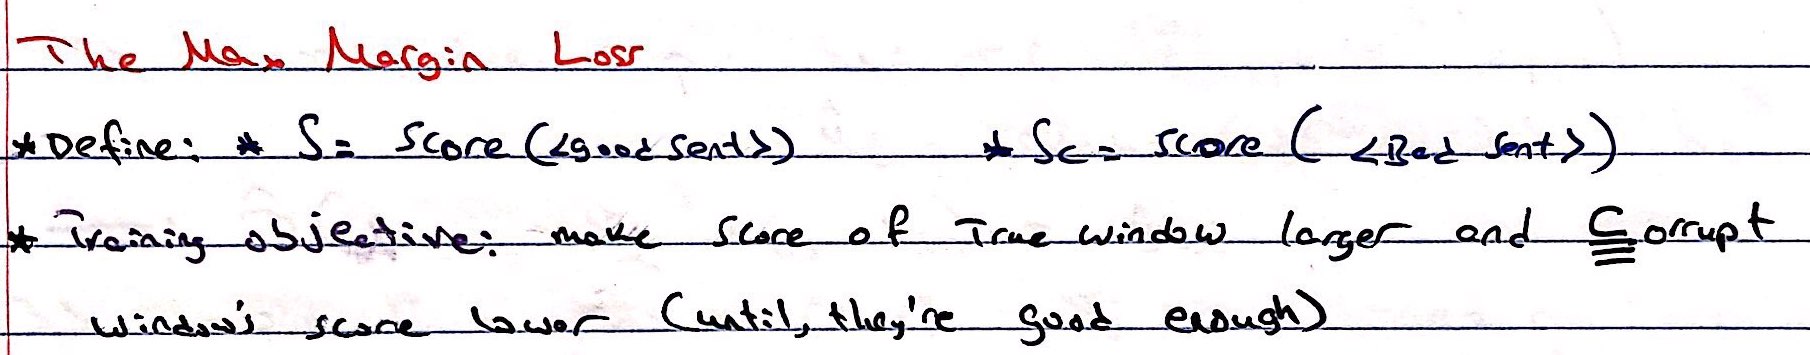 The Max Margin Loss
* Define: * S = Score (<good sent>) * Sc = score ( <Bad sent>)
* Training objective: make score of True window larger and Corrupt
window's score lower (until, they're good enough)